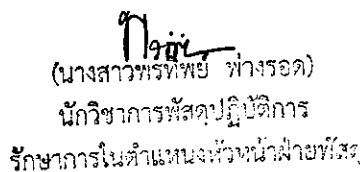 (นางสาวพรทิพย์ พ่วงรอด)
นักวิชาการพัสดุปฏิบัติการ
รักษาการในตำแหน่งหัวหน้าฝ่ายพัสดุ